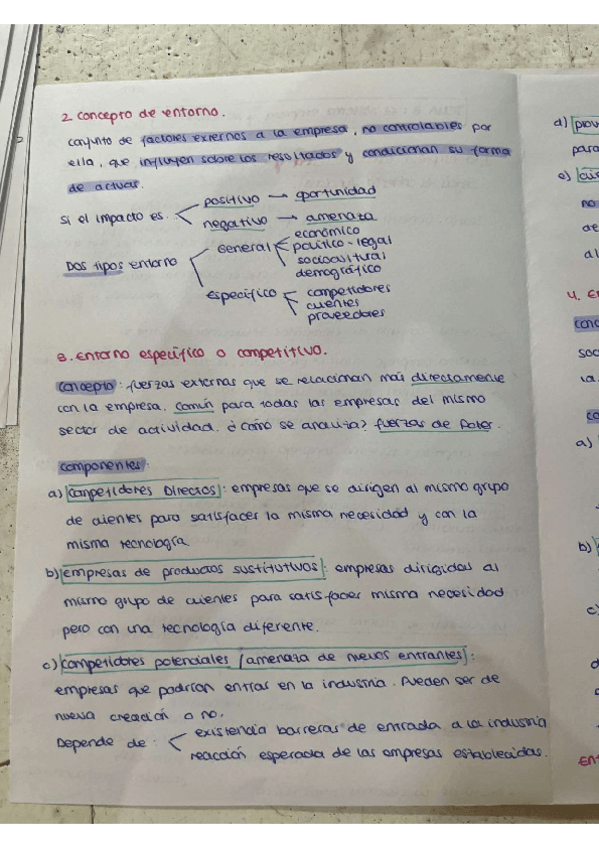 2. concepto de entorno.
conjunto de factores externos a la empresa, no controlables por
ella, que influyen sobre los resultados y condicionan su forma
de actuar.
si el impacto es
positivo → oportunidad
negativo → amenaza
Dos tipos entorno
General
económico
político-legal
sociocultural
demográfico
Específico
competidores
clientes
proveedores
3. Entorno específico o competitivo.
concepto: fuerzas externas que se relacionan más directamente
con la empresa. Común para todas las empresas del mismo
sector de actividad. ¿cómo se analiza? fuerzas de Poter.
componentes:
a) competidores Directos: empresas que se dirigen al mismo grupo
de clientes para satisfacer la misma necesidad y con la
misma tecnología.
b) empresas de productos sustitutivos: empresas dirigidas al
mismo grupo de clientes para satisfacer misma necesidad
pero con una tecnología diferente.
c) competidores potenciales (amenaza de nuevos entrantes):
empresas que podrían entrar en la industria. Pueden ser de
nueva creación o no.
Depende de:
existencia barreras de entrada a la industria
reacción esperada de las empresas establecidas.
d) prov
para
e)
no
de
al
4. E
conc
soc
la
co
a)
b)
c)
d
Ent